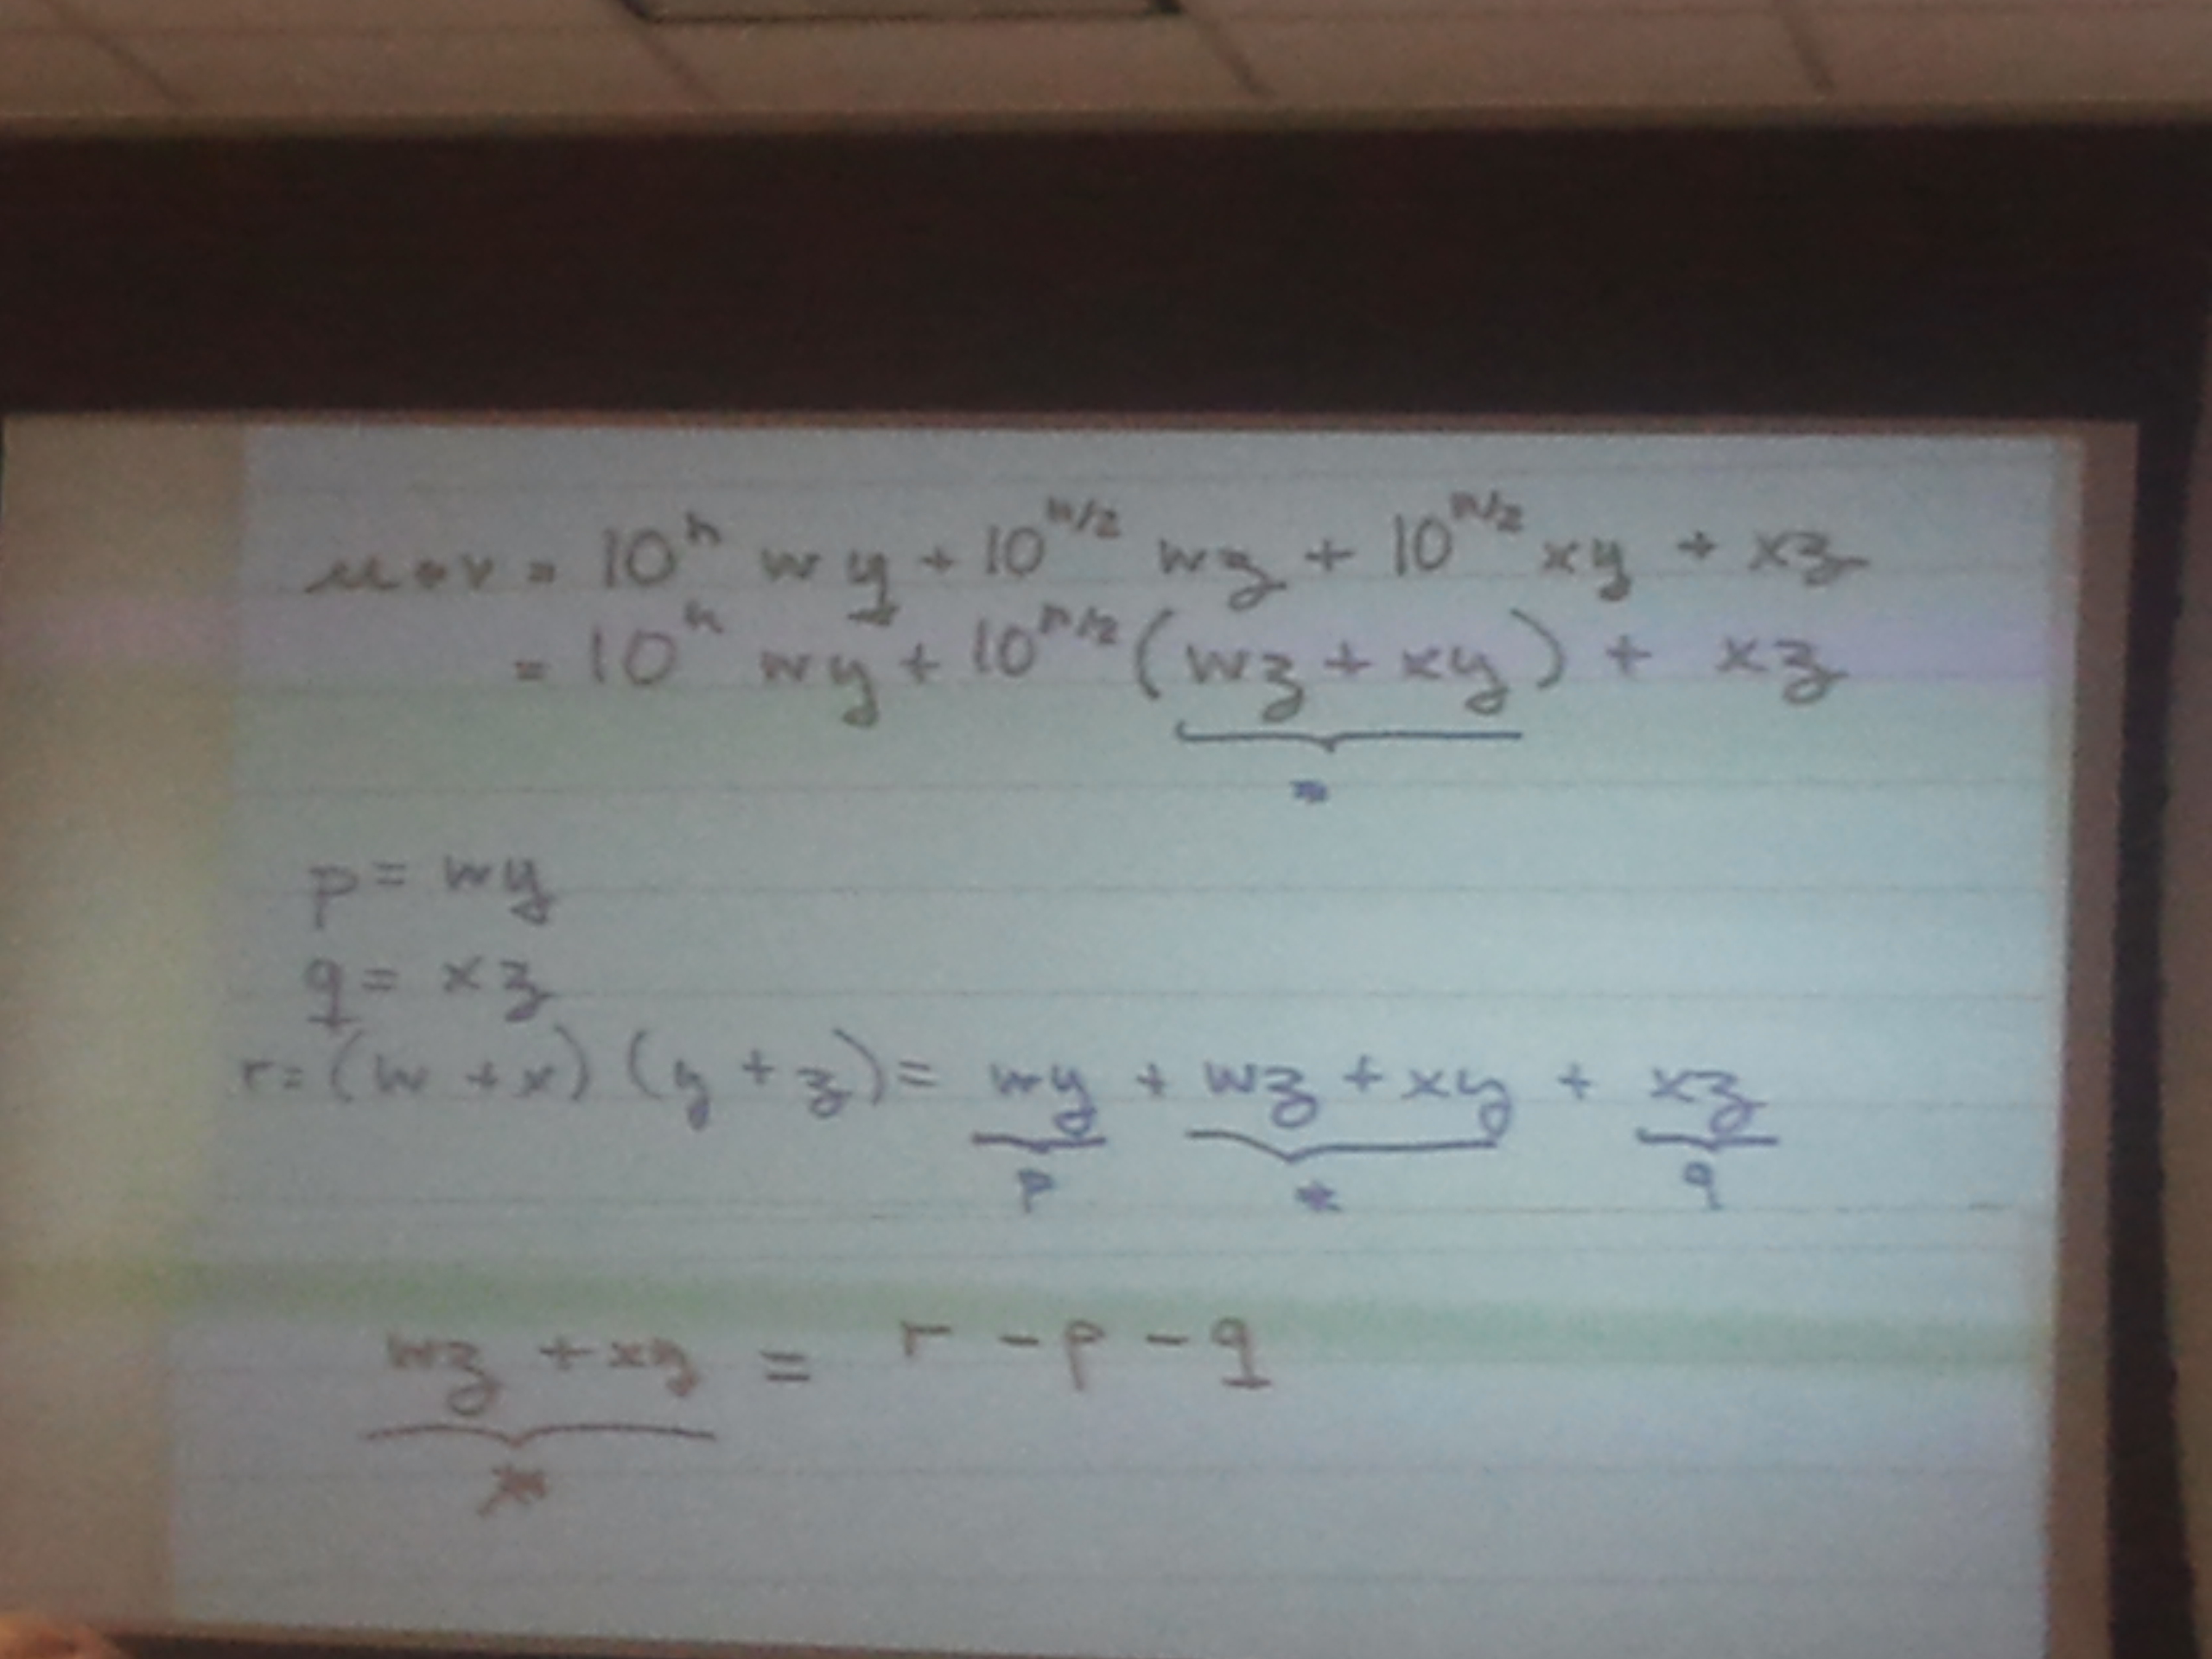 u * v = 10^n wy + 10^{n/2} wz + 10^{n/2} xy + xz
= 10^n wy + 10^{n/2} (wz + xy) + xz
*
p = wy
q = xz
r = (w + x) (y + z) = wy + wz + xy + xz
p * q
wz + xy = r - p - q
*